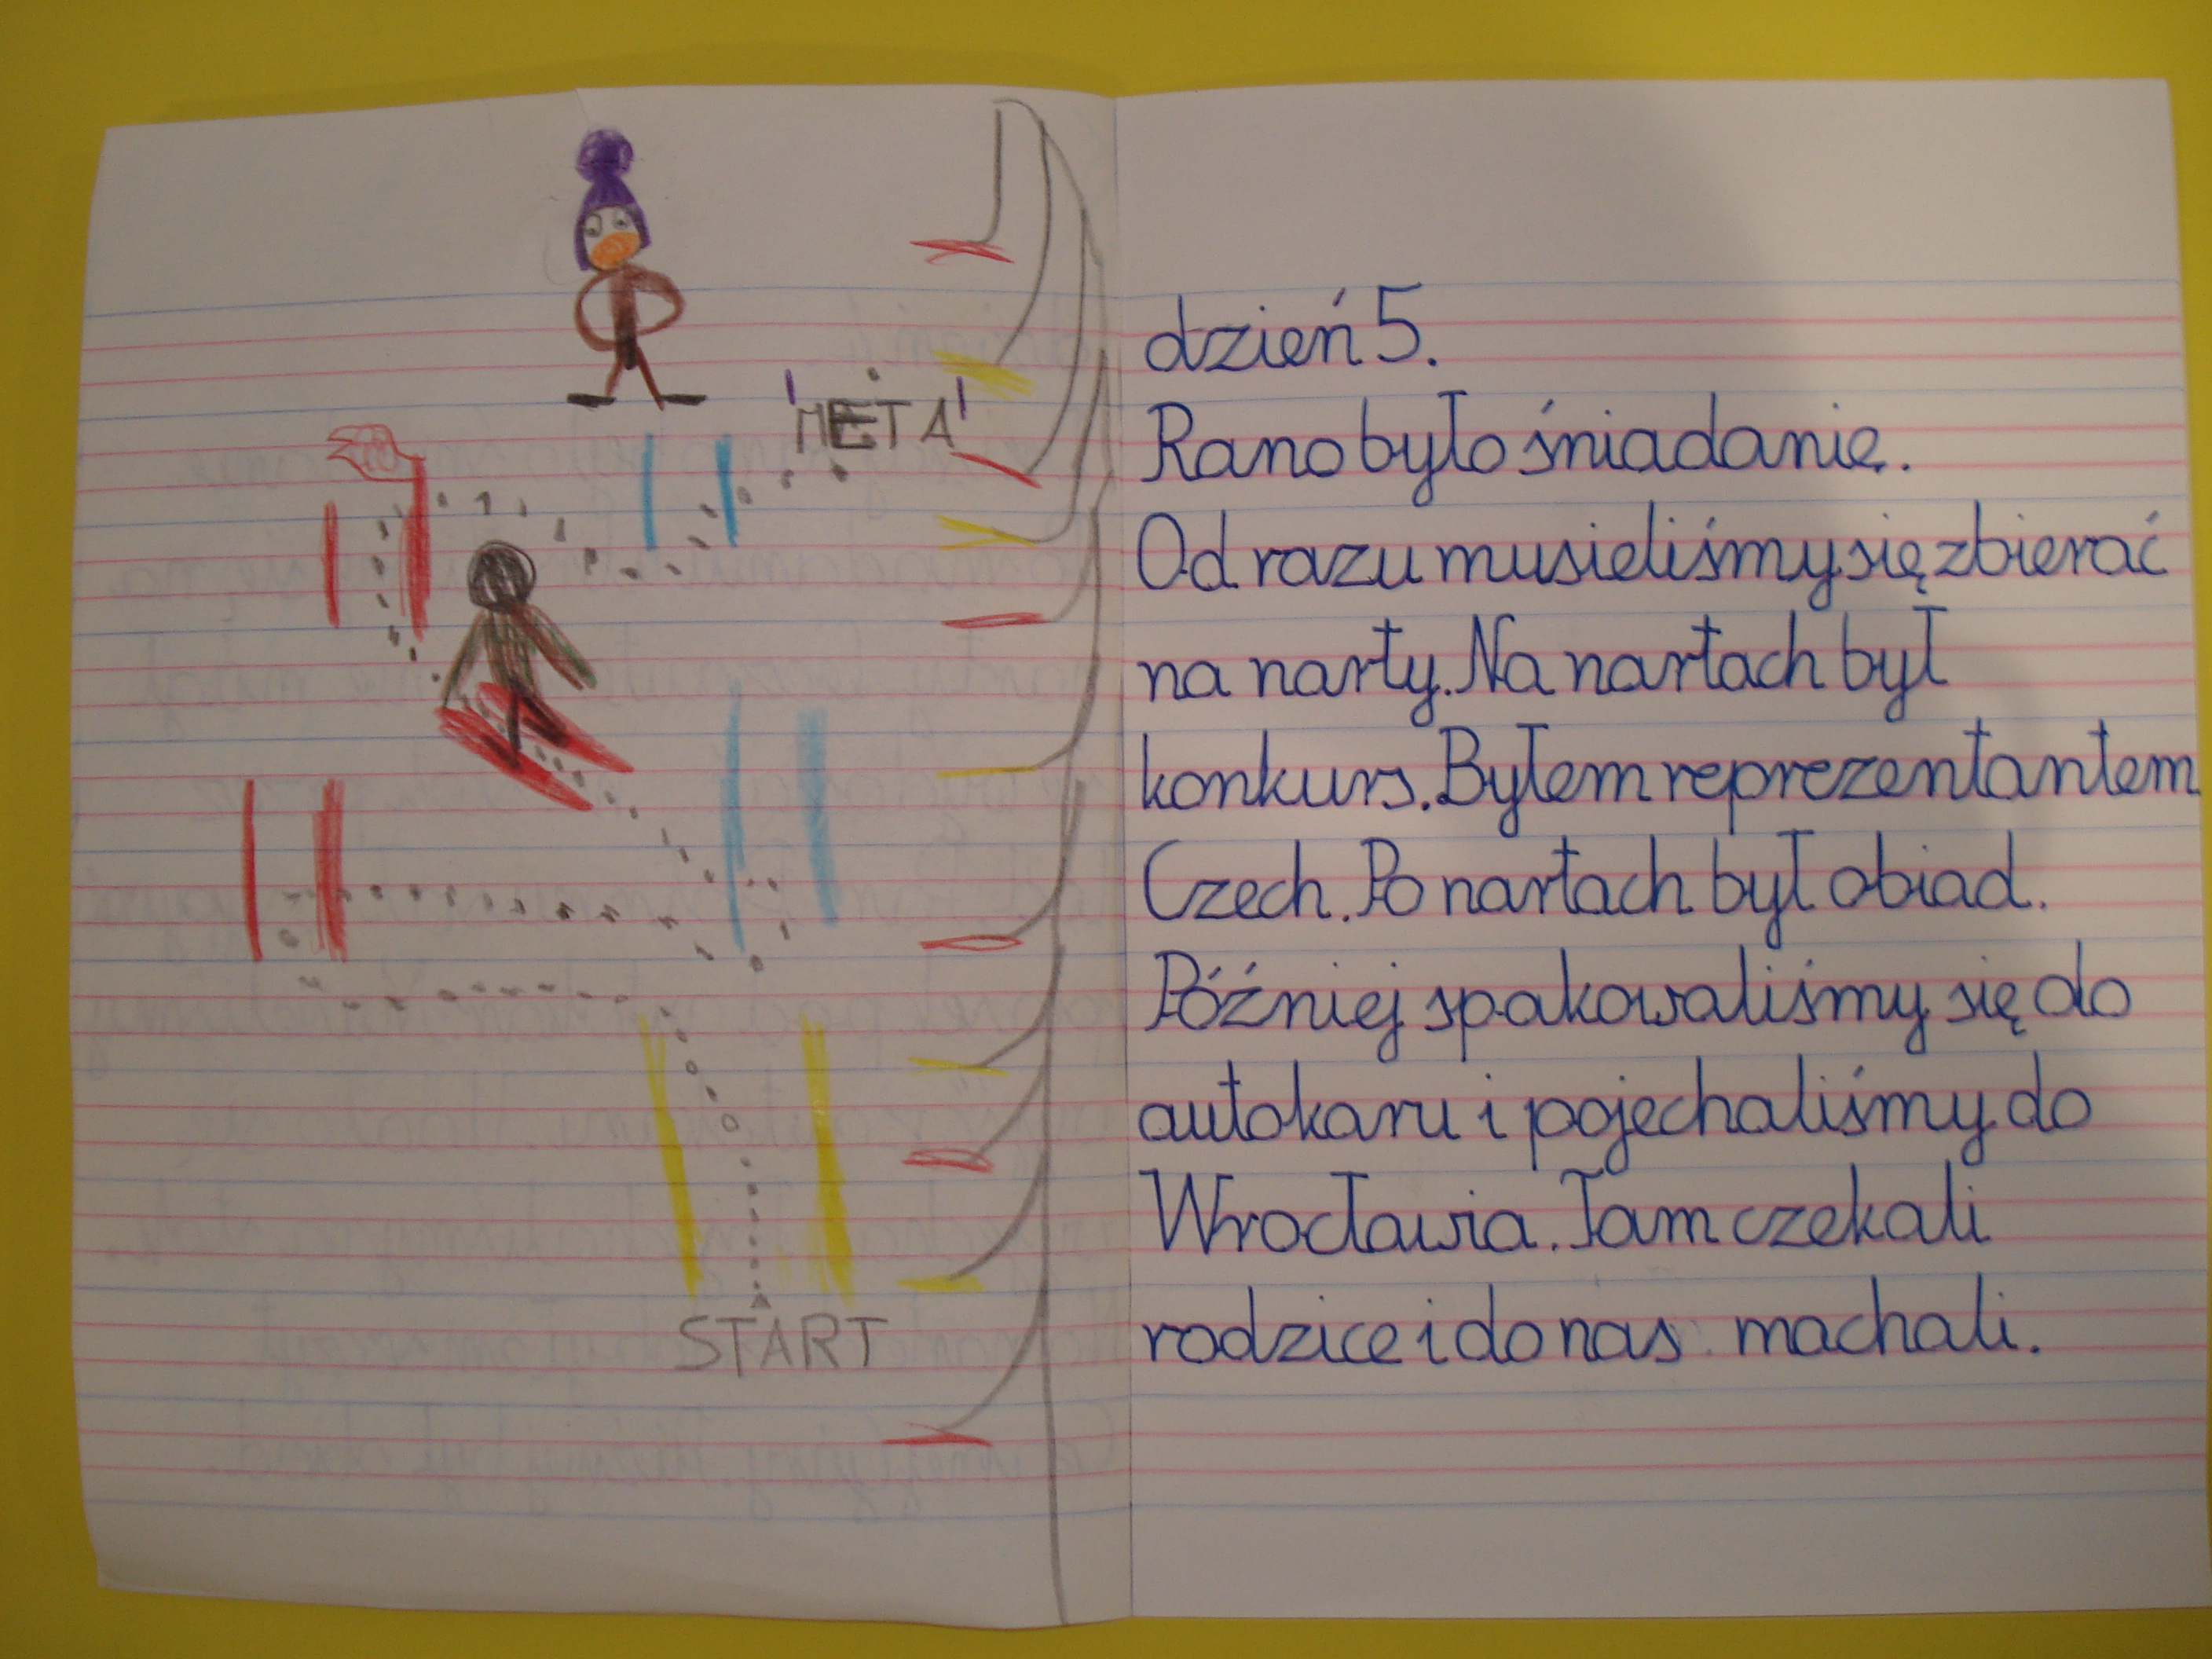 META
START
dzień 5.
Rano było śniadanie.
Od razu musieliśmy się zbierać
na narty. Na nartach był
konkurs. Byłem reprezentantem
Czech. Po nartach był obiad.
Później spakowaliśmy się do
autokaru i pojechaliśmy do
Wrocławia. Tam czekali
rodzice i do nas machali.